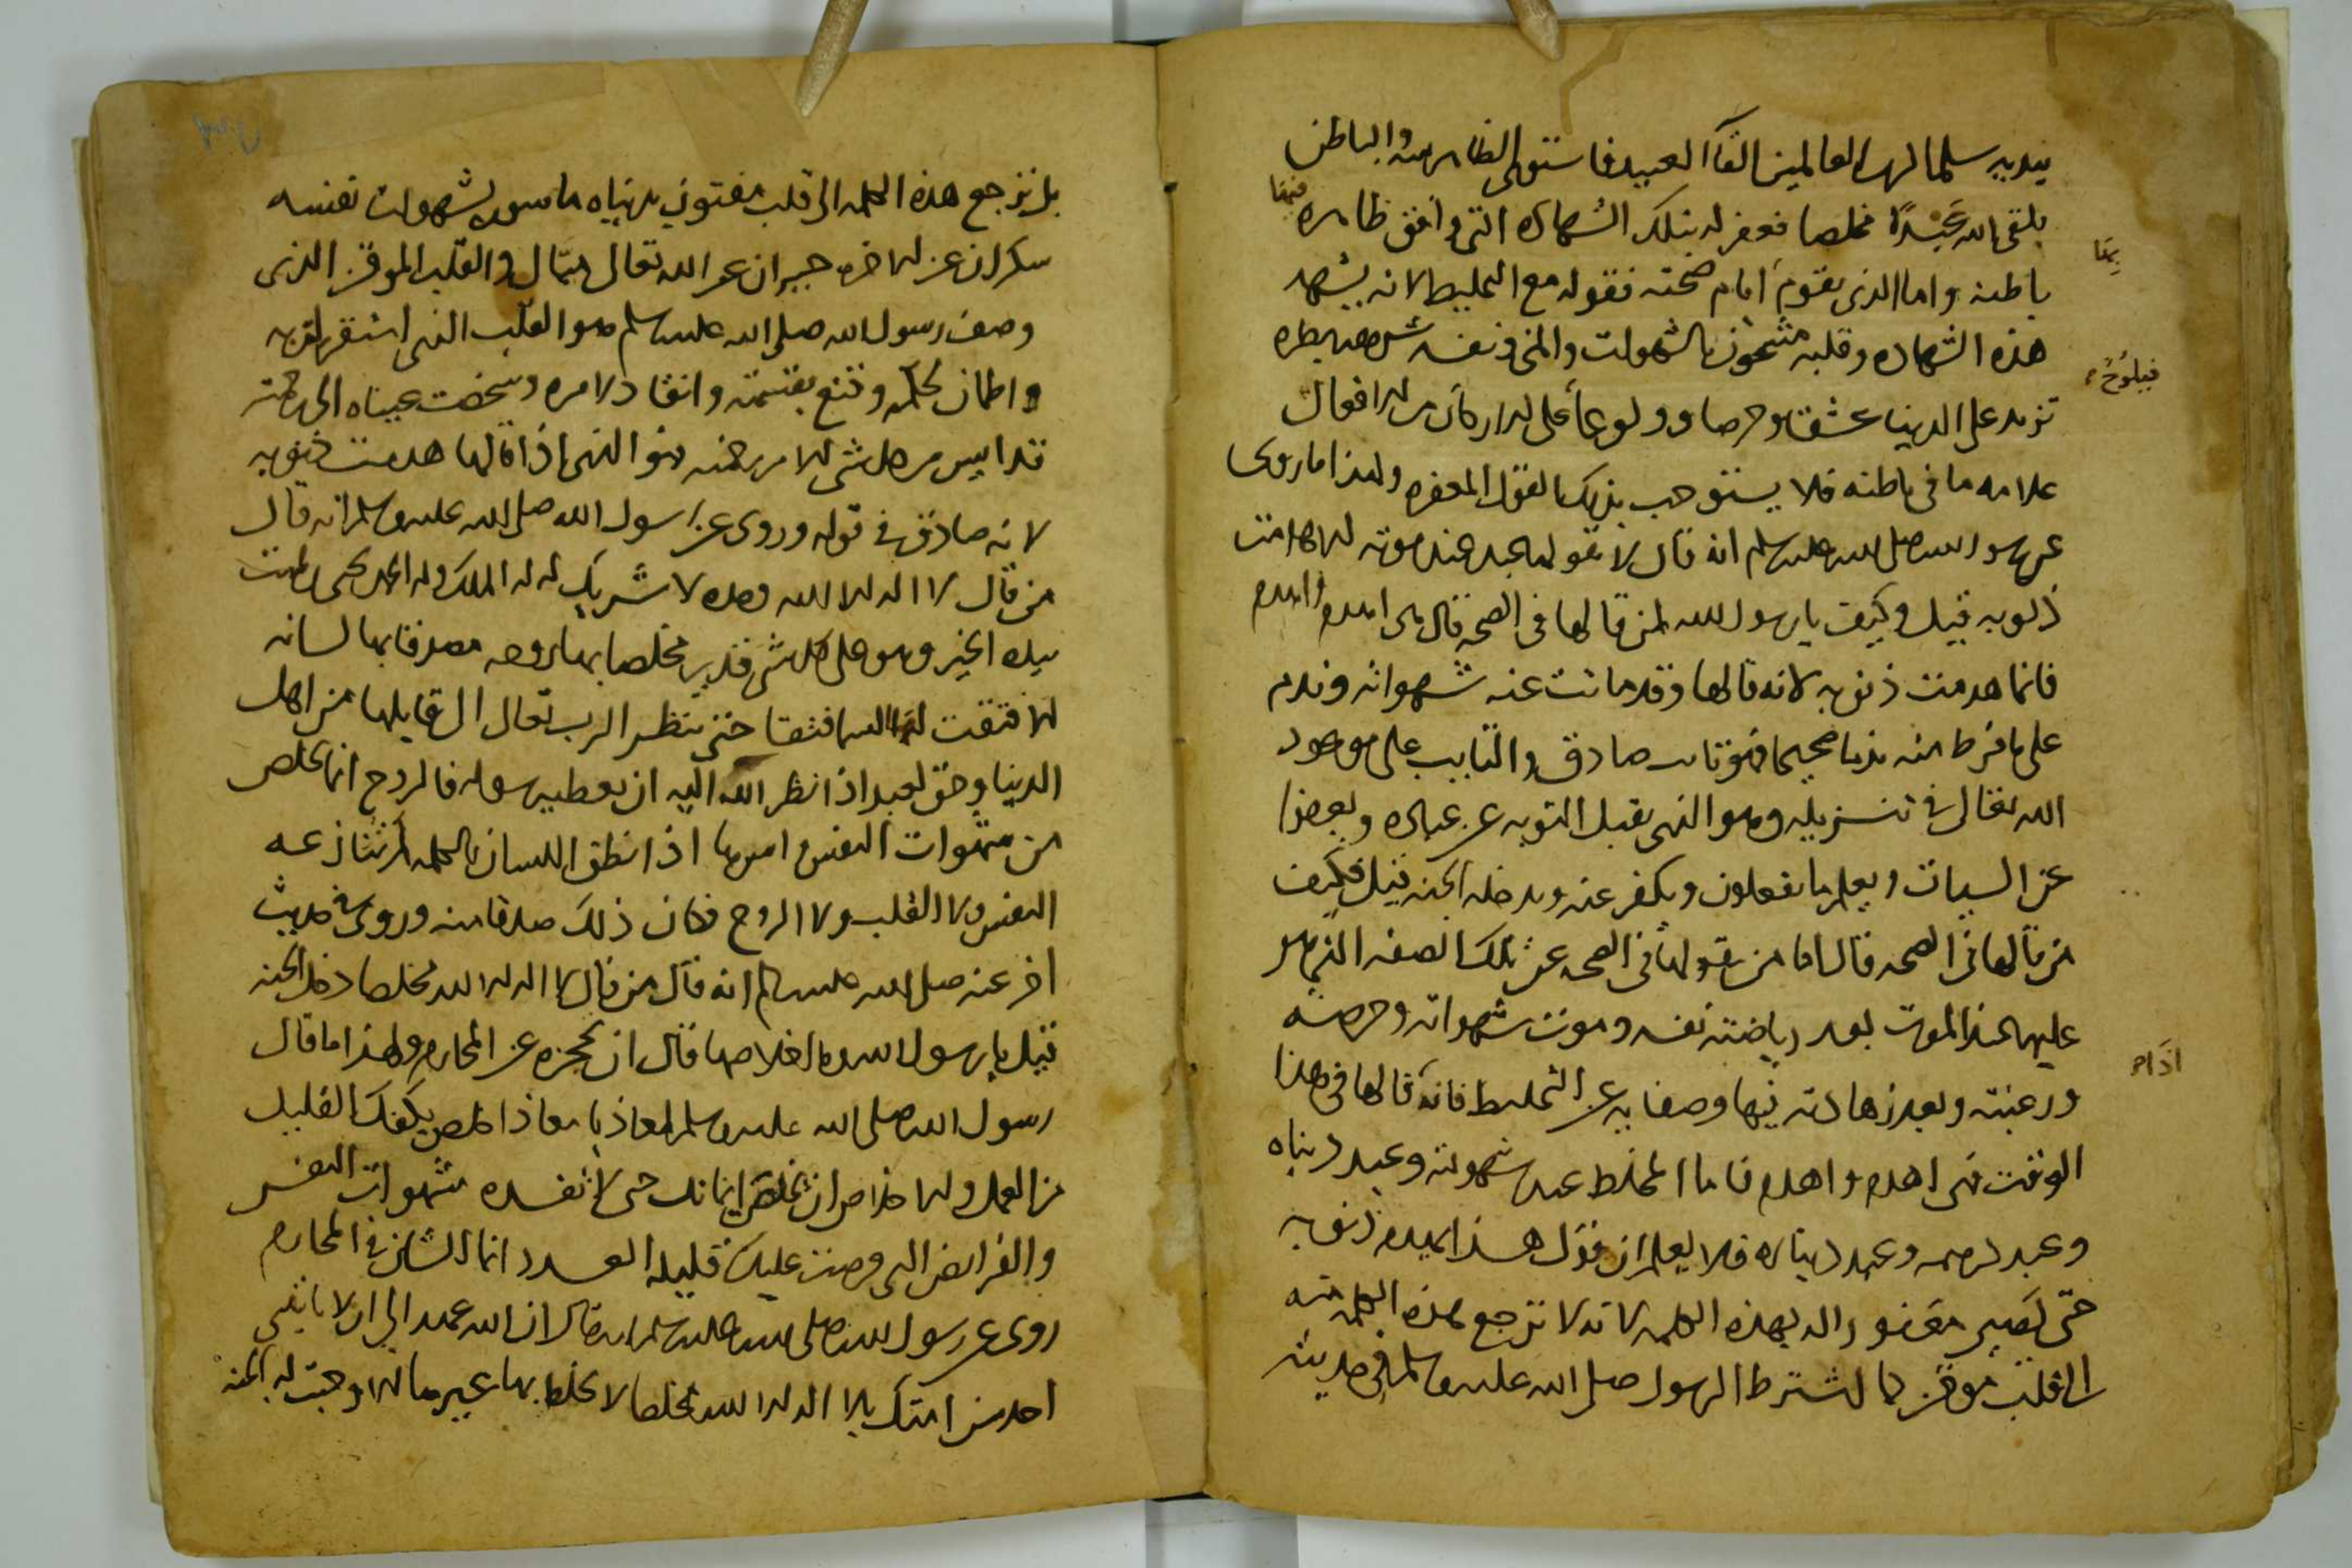 بيديه سلما لرب العالمين القا العبيد فاستوى الظاهر منه والباطن
يلقى الله عبدا مخلصا فغفر له بتلك الشهادة التي وافق ظاهره
باطنه واما الذي يقوم أيام صحته فقوله مع التخليط لانه يشهد
هذه الشهاده وقلبه مشحون بالشهوات والمنى ونفسه شرهه بطره
على الدنيا عشقا وحرصا وولوعا
علامه ما في باطنه فلا يستوجب بذلك القول المغفره ولهذا ما روى
عن رسول الله صلى الله عليه وسلم انه قال لا يقولها عبد عند موته الا هدمت
ذنوبه قيل وكيف يا رسول الله لمن قالها في الصحه قال هي اهدم واهدم
فانما هدمت ذنوبه لانه قالها وقد ماتت عنه شهواته وندم
على ما فرط منه ندما صحيحا فهو تائب صادق والتايب على موعود
الله تعالى في تنزيله وهو الذي يقبل التوبه عن عباده ويعفوا
عن السيات ويعلم ما تفعلون ويكفر عنه ويدخله الجنه قيل فكيف
من قالها في الصحه قال اما من يقولها في الصحه على تلك الصفه الذي هو
عليها عند الموت بعد رياضته نفسه وموت شهواته وحرصه
ورغبته وبعد زهادته فيها وصفايه عن التخليط فانه قالها في هذا
الوقت فهي اهدم واهدم فاما المخلط عبد شهوته وعبد دنياه
وعبد درهمه وعبد ديناره فلا يعلم ان قول هذا يهدم ذنوبه
حتى يصير مغفورا له بهذه الكلمه لانه لا ترجع هذه الكلمه منه
الى قلب موقن كما اشترط الرسول صلى الله عليه وسلم في حديثه
بل ترجع هذه الكلمه الى قلب مفتون بدنياه ماسور بشهوات نفسه
سكران عن الاخره حيران عن الله تعالى والقلب الموقن الذي
وصف رسول الله صلى الله عليه وسلم هو القلب الذي استقر لربه
واطمان لحكمه وقنع بقسمته وانقاد لامره وشخصت عيناه الى رحمته
قد ايس من كل شي الا من رحمته فهو الذي اذا قالها هدمت ذنوبه
لانه صادق في قوله وروى عن رسول الله صلى الله عليه وسلم انه قال
من قال لا اله الا الله وحده لا شريك له له الملك وله الحمد يحيى ويميت
بيده الخير وهو على كل شي قدير مخلصا بها روحه مصدقا بها لسانه
الا فتقت لها السما فتقا حتى ينظر الرب تعالى الى قايلها من اهل
الدنيا وحق لعبد اذا نظر الله اليه ان يعطيه سوله فالروح انما يخلص
من شهوات النفس اذا نطق اللسان بالكلمه لم تنازعه
النفس ولا القلب ولا الروح فكان ذلك صدقا منه وروى في حديث
اخر عنه صلى الله عليه وسلم انه قال من قال لا اله الا الله مخلصا دخل الجنه
قيل يا رسول الله وما اخلاصها قال ان تحجزه عن المحارم ولهذا ما قال
رسول الله صلى الله عليه وسلم لمعاذ يا معاذ اخلص يكفك القليل
من العمل والاخلاص ان تخلص ايمانك حتى لا تفسده شهوات النفس
والفرايض التي فرضت عليك قليله العدد انما الشان في المحارم
روى عن رسول الله صلى الله عليه وسلم انه قال ان الله عهد الي ان لا ياتيني
احد من امتك بلا اله الا الله مخلصا لا يخلط بها غيرها الا وجبت له الجنه